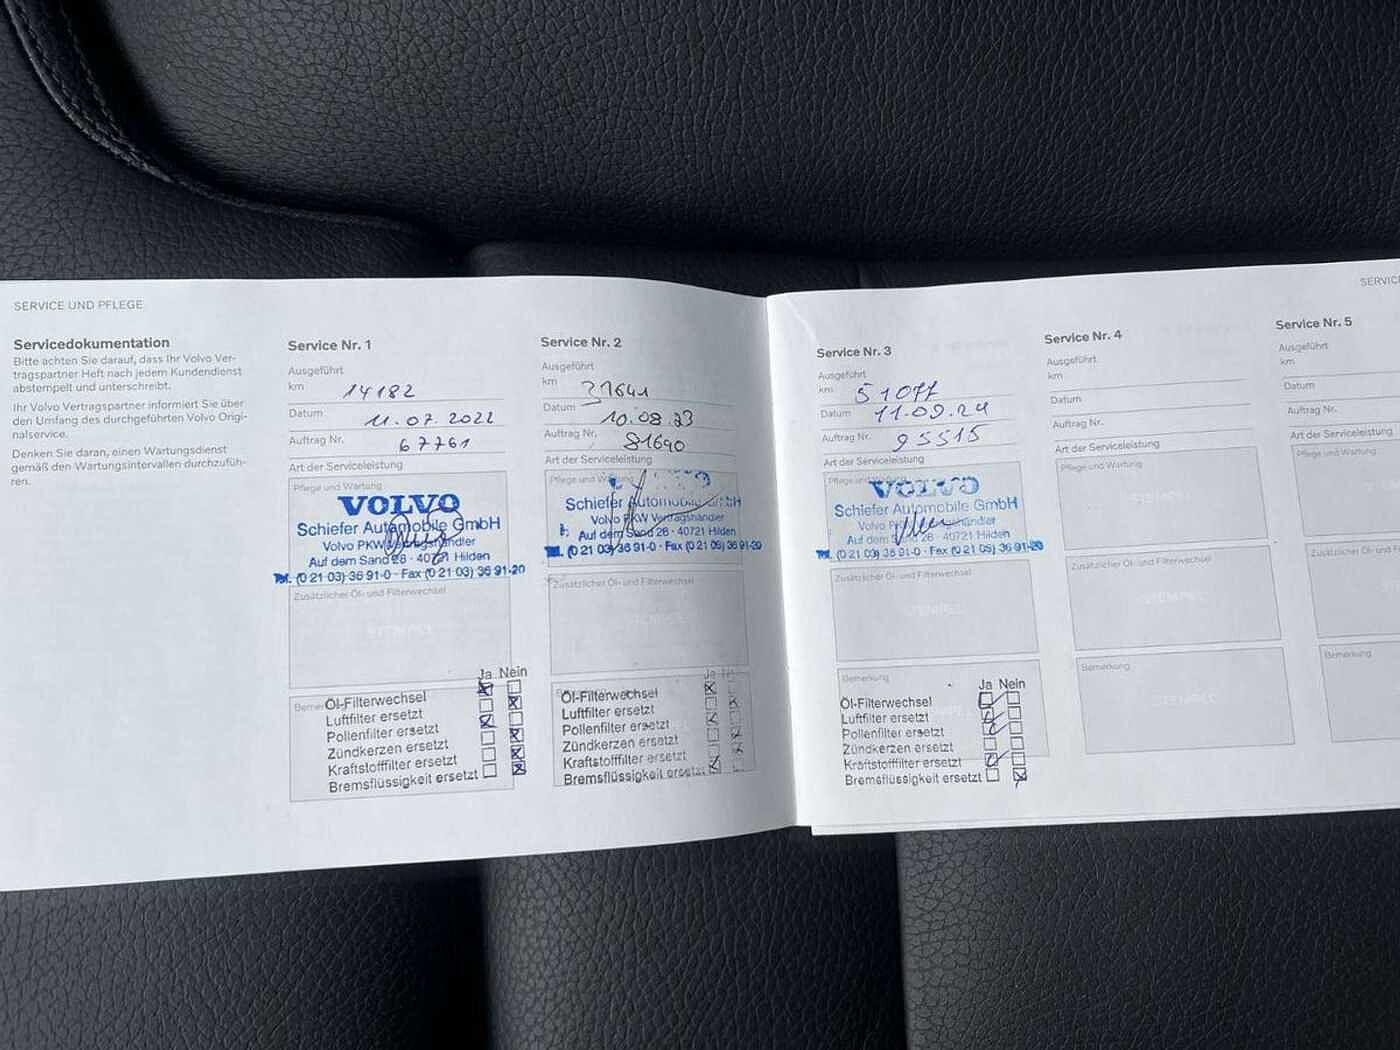 SERVICE UND PFLEGE
Servicedokumentation
Bitte achten Sie darauf, dass Ihr Volvo Ver-
tragspartner Heft nach jedem Kundendienst
abstempelt und unterschreibt.
Ihr Volvo Vertragspartner informiert Sie über
den Umfang des durchgeführten Volvo Origi-
nalservice.
Denken Sie daran, einen Wartungsdienst
gemäß den Wartungsintervallen durchzufüh-
ren.
Service Nr. 1
Ausgeführt
km 14182
Datum 11.07.2022
Auftrag Nr. 67761
Art der Serviceleistung
Pflege und Wartung
VOLVO
Schiefer Automobile GmbH
Volvo PKW Vertragshändler
Auf dem Sand 26 - 40721 Hilden
Tel. (0 21 03) 36 91-0 · Fax (0 21 03) 36 91-20
Zusätzlicher Öl- und Filterwechsel
STEMPEL
Ja Nein
Öl-Filterwechsel
Luftfilter ersetzt
Pollenfilter ersetzt
Zündkerzen ersetzt
Kraftstofffilter ersetzt
Bremsflüssigkeit ersetzt
Service Nr. 2
Ausgeführt
km 31641
Datum 10.08.23
Auftrag Nr. 81640
Art der Serviceleistung
Pflege und Wartung
Schiefer Automobile GmbH
Volvo PKW Vertragshändler
Auf dem Sand 26 - 40721 Hilden
(0 21 03) 36 91-0 · Fax (0 21 03) 36 91-20
Zusätzlicher Öl- und Filterwechsel
STEMPEL
Ja
Öl-Filterwechsel
Luftfilter ersetzt
Pollenfilter ersetzt
Zündkerzen ersetzt
Kraftstofffilter ersetzt
Bremsflüssigkeit ersetzt
SERVICE
Service Nr. 3
Ausgeführt
km 51077
Datum 11.09.24
Auftrag Nr. 95515
Art der Serviceleistung
Pflege und Wartung
VOLVO
Schiefer Automobile GmbH
Volvo PKW Vertragshändler
Auf dem Sand 26 - 40721 Hilden
Tel. (0 21 03) 36 91-0 · Fax (0 21 03) 36 91-20
Zusätzlicher Öl- und Filterwechsel
STEMPEL
Bemerkung
Ja Nein
Öl-Filterwechsel
Luftfilter ersetzt
Pollenfilter ersetzt
Zündkerzen ersetzt
Kraftstofffilter ersetzt
Bremsflüssigkeit ersetzt
Service Nr. 4
Ausgeführt
km
Datum
Auftrag Nr.
Art der Serviceleistung
Pflege und Wartung
STEMPEL
Zusätzlicher Öl- und Filterwechsel
STEMPEL
Bemerkung
STEMPEL
Service Nr. 5
Ausgeführt
km
Datum
Auftrag Nr.
Art der Serviceleistung
Pflege und Wartung
Zusätzlicher Öl- und F
Bemerkung